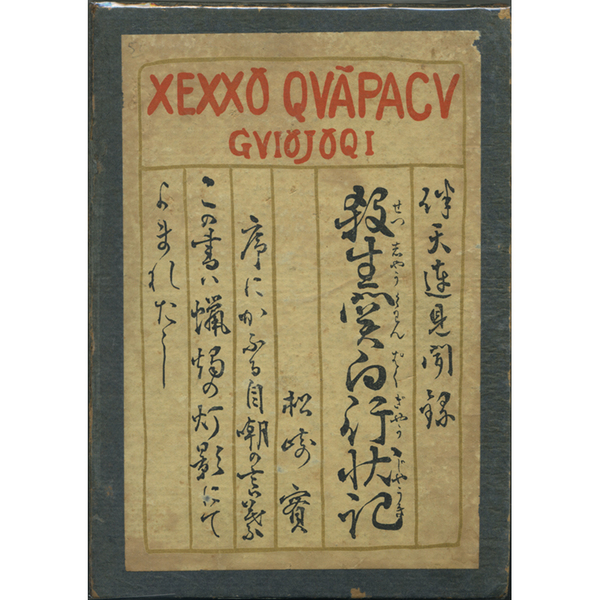 XEXXŎ QVÃPACV
GVIŎJŎQI
伴天連見聞録
せつしやうくわんぱくぎやうじやうき
殺生関白行状記
松崎實
序にかふる自嘲の言葉
この書ハ蝋燭の灯影にて
よまれたし